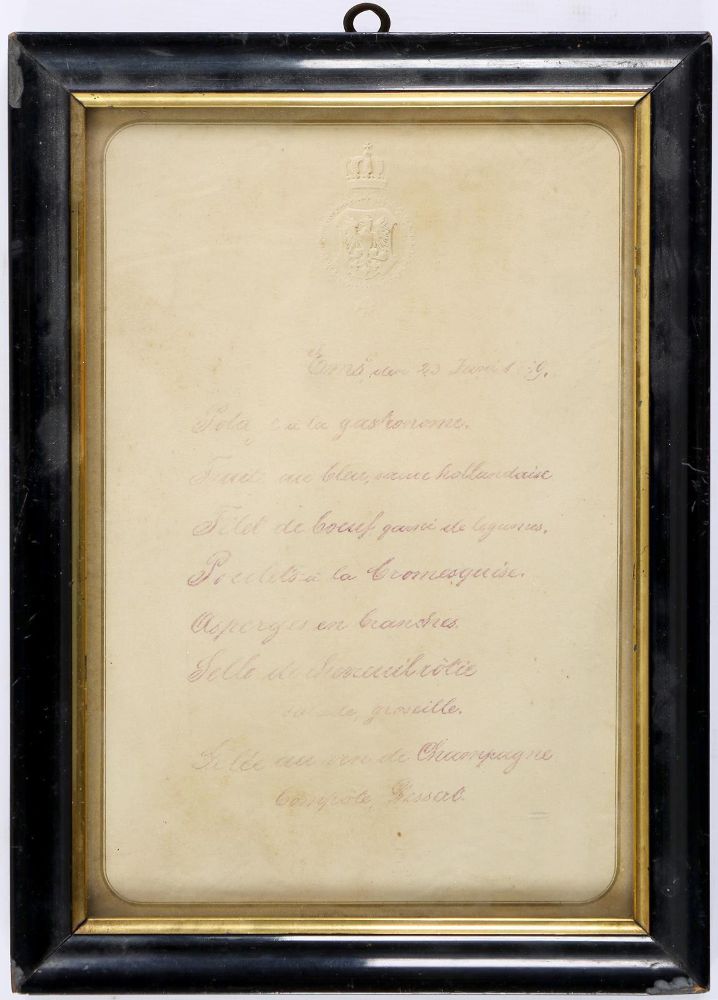 Ems, den 23 Juni 1
à la gastronome.
au bleu, sauce hollandaise
Filet de boeuf garni de legumes.
Poulets à la Cromesquise.
Asperges en branches
Selle de chevreuil rôtie
salade, groseille.
Gelée au vin de Champagne
Compôte, Dessert.